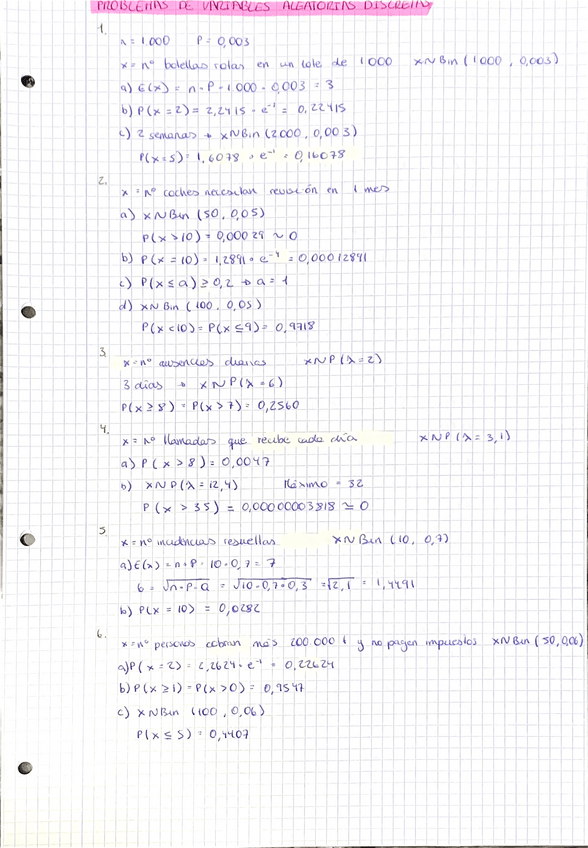 PROBLEMAS DE VARIABLES ALEATORIAS DISCRETAS
1.
n = 1.000 P = 0,003
x = nº botellas rotas en un lote de 1000 x~Bin (1000, 0,003)
a) E(x) = n·P = 1.000·0,003 = 3
b) P(x = 2) = 2,2415·e⁻¹ = 0,22415
c) 2 semanas → x~Bin (2000, 0,003)
P(x=5) = 1,6078·e⁻¹ = 0,16078
2.
x = nº coches necesitan revisión en 1 mes
a) x~Bin (50, 0,05)
P(x>10) = 0,00029 ~ 0
b) P(x = 10) = 1,2891·e⁻⁴ = 0,00012891
c) P(x ≤ a) ≥ 0,2 → a = 1
d) x~Bin (100, 0,05)
P(x<10) = P(x ≤ 9) = 0,9718
3.
x = nº ausencias diarias x~P(λ=2)
3 días → x~P(λ=6)
P(x≥8) = P(x>7) = 0,2560
4.
x = nº llamadas que recibe cada día x~P(λ=3,1)
a) P(x>8) = 0,0047
b) x~P(λ=12,4) Máximo = 32
P(x > 35) = 0,00000003818 ≃ 0
5.
x = nº incidencias resueltas x~Bin (10, 0,7)
a) E(x) = n·P = 10·0,7 = 7
6 = √n·P·Q = √10·0,7·0,3 = √2,1 = 1,4491
b) P(x = 10) = 0,0282
6.
x = nº personas cobran más 200.000 € y no pagan impuestos x~Bin (50, 0,06)
a) P(x = 2) = 2,2624·e⁻¹ = 0,22624
b) P(x ≥ 1) = P(x>0) = 0,9547
c) x~Bin (100, 0,06)
P(x ≤ 5) = 0,4407